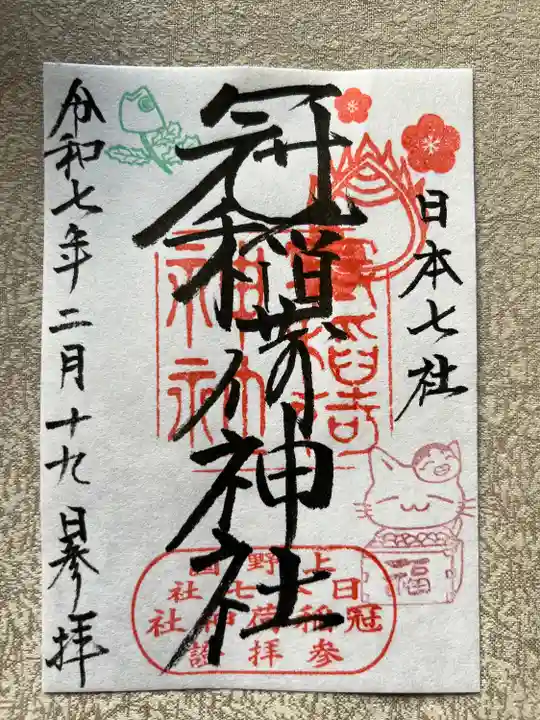 日本七社
冠稲荷神社
令和七年二月十九日参拝
福
上野国
日本七社
冠稲荷神社
参拝證